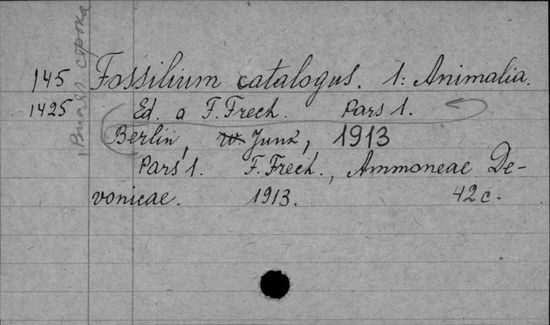 145 Fossilium catalogus. 1: Animalia.
1425 Ed. a F. Frech. Pars 1.
Berlin, W. Junk, 1913
Pars 1. F. Frech., Ammoneae De-
vonicae. 1913. 42 c.
строка